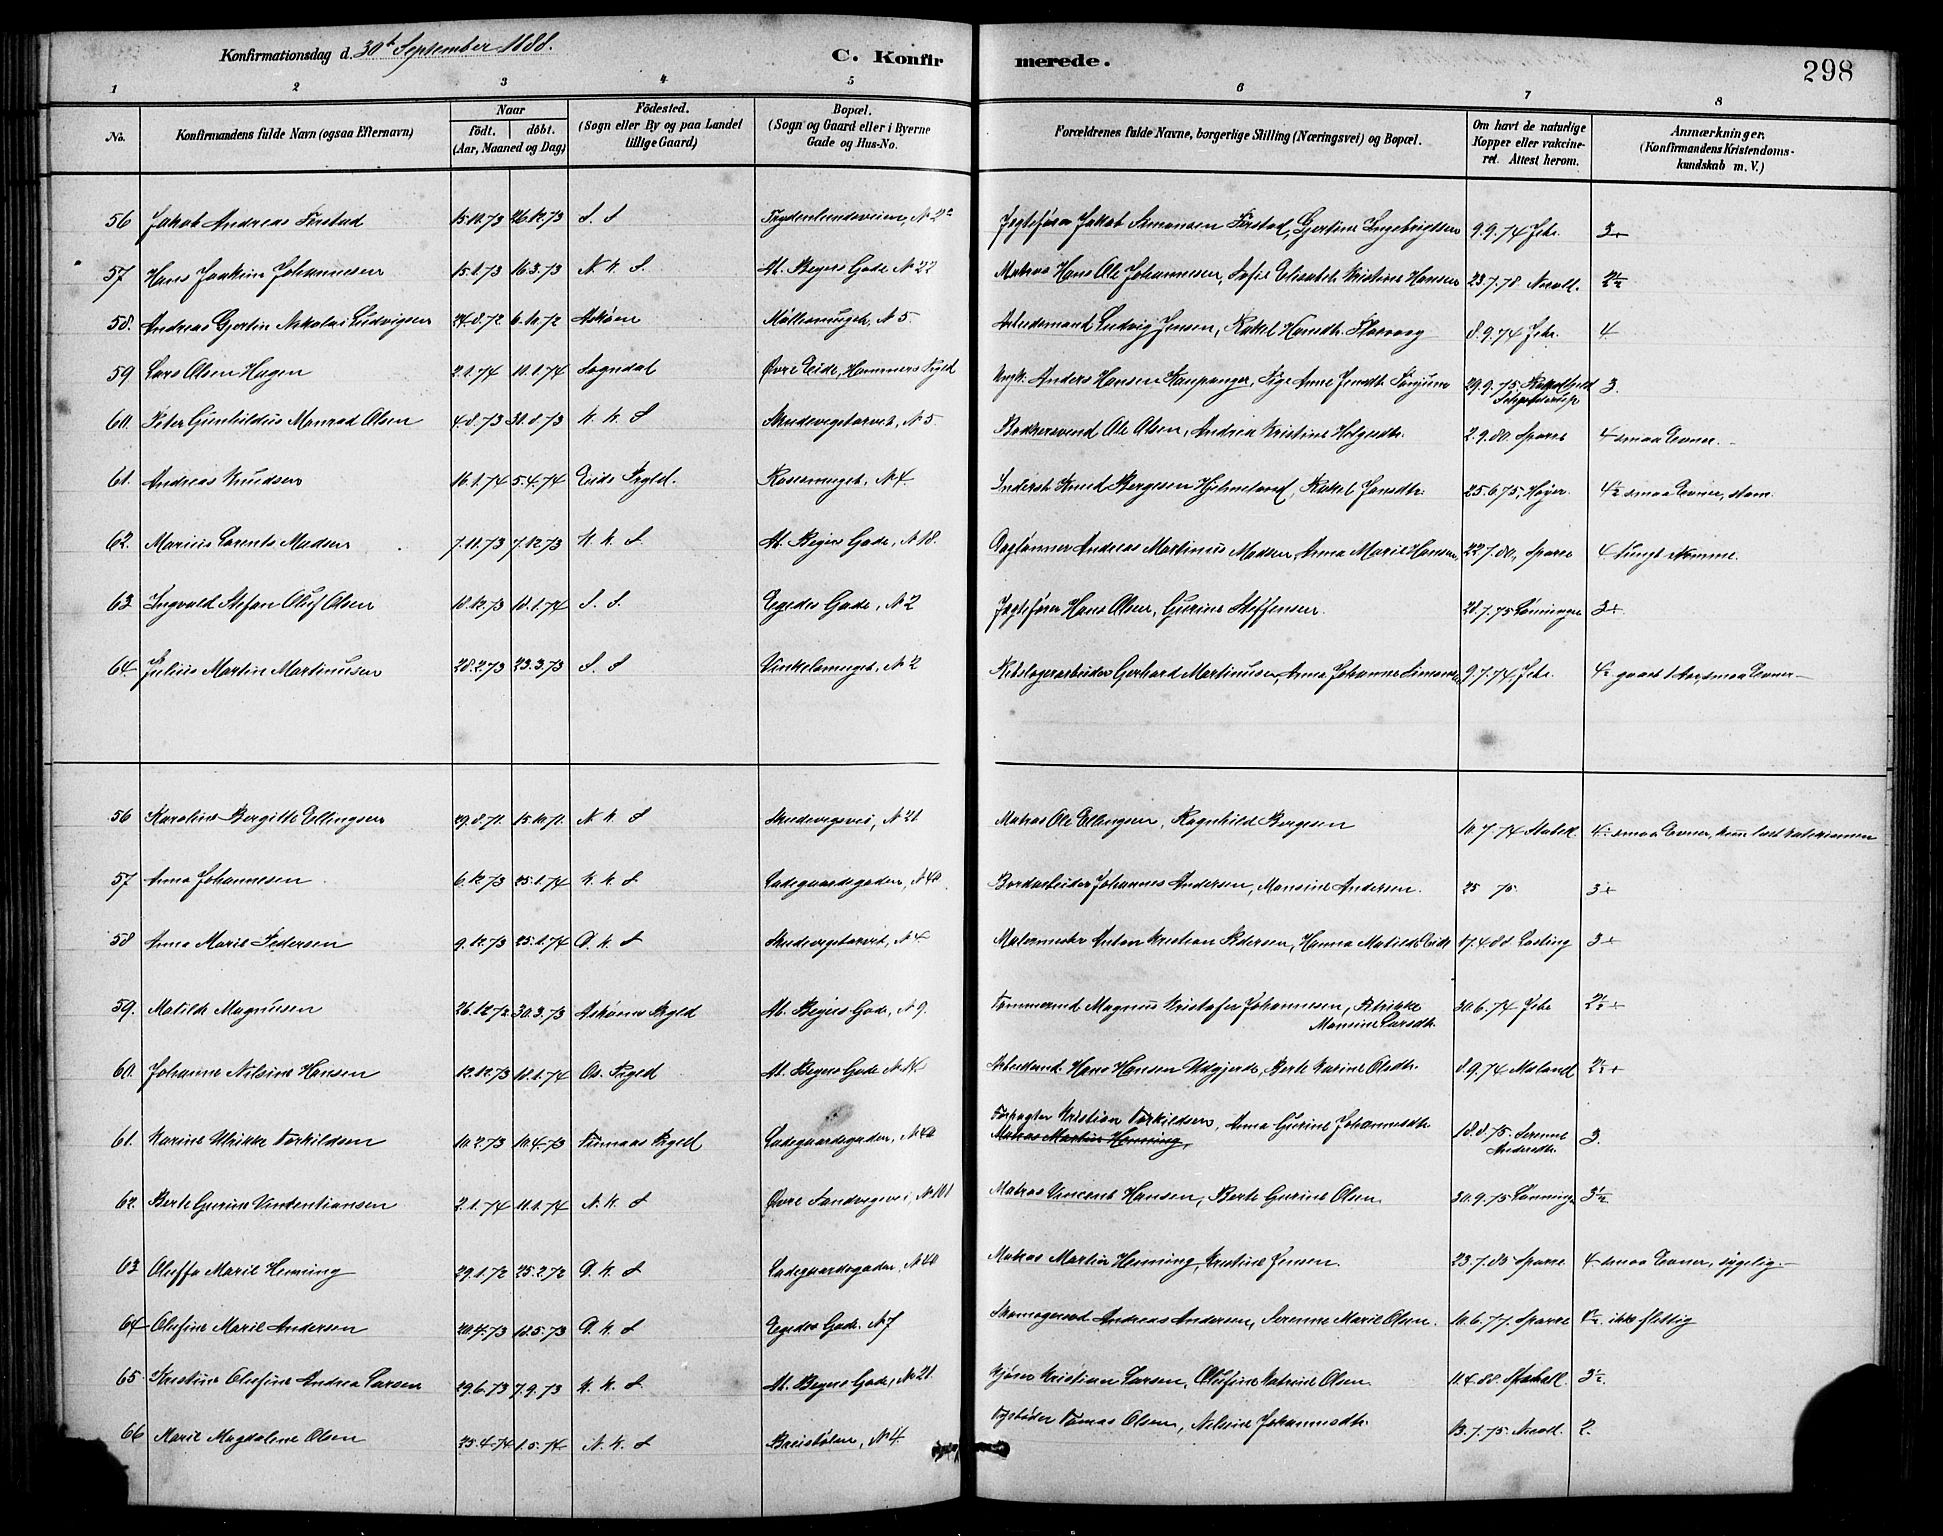 Konfirmationsdag d. 30t September 1888.
C. Konfirmerede.
298
1 2 3 4 5 6 7 8
No.
Konfirmandens fulde Navn (ogsaa Efternavn)
Naar
födt. döbt.
(Aar, Maaned og Dag)
Födested.
(Sogn eller By og paa Landet tillige Gaard)
Bopæl.
(Sogn og Gaard eller i Byerne Gade og Hus-No.
Forældrenes fulde Navne, borgerlige Stilling (Næringsvei) og Bopæl.
Om havt de naturlige Kopper eller vakcineret. Attest herom.
Anmærkninger.
(Konfirmandens Kristendomskundskab m. V.)
56 Jakob Andreas 15.11.73 26.12.73 S. S Jakob Simonsen Gjertine Ingebrigtsen 9.9.74 Jebe. 3+
57 Hans Joakim Johannesen 15.1.73 16.3.73 N. K. S. Abs. Beyers Gade, N 22 Matros Hans Ole Johannesen, Sofie Elisabeth Kristine Hansen 23.7.78
58. Andreas Gjertin Nikolai Ludvigsen 24.8.72 6.10.72 Askøen N 5 Arbeidsmand Ludvig Jensen, Rakel 8.9.74 Jebe. 4
59 Lars Olsen Hagen 2.1.74 11.1.74 Sogndal Øvre Eide, Hammers Prgld Anders Hansen Kaupanger, Anne 29.9.75 3.
60. Peter Gunhildus Monrad Olsen 4.8.73 31.8.73 K. K. S Skudevigstorvet, N 5 Bakkersvend Ole Olsen, Andrea Kristine 2.9.80. Sparre 4 smaa Evner.
61. Andreas Knudsen 16.1.74 5.4.74 Eids Prgld. Rosesmuget, N 4. Inderst Knud Børgesen Hjelmeland, Rakel Jensdtr. 25.6.75, smaa Evner,
62. Marius Lorents Madsen 7.11.73 7.12.73 K. K. S. Abs. Beyers Gade, N 18. Daglønner Andreas Martinus Madsen, Anna Marie Hansen 22.7.80, Sparre 4 tungt Nemme.
63 Ingvald Stefan Oluf Olsen 18.12.73 18.1.74 S. S. Egedes Gade, N 2 Hans Olsen, Gurine Steffensen. 28.7.75 Lønninger 3+
64. Julius Martin Martinusen 28.2.73 23.3.73 S. S Vinkelsmuget, N 2 Rebslagerarbeider Gerhard Martinusen, Anna Johanne Simonsen 9.7.74, Jebe. smaa Evner
56 Karoline Bergitte Ellingsen 29.8.71. 15.10.71. N. K S Skudevigsvei, N 21 Matros Ole Ellingsen, Ragnhild Børgesen 10.7.74 smaa Evner,
57 Anna Johannesen 6.12.73 25.1.74 K. K S Ladegaardsgaden, N 40. Bordarbeider Johannes Andersen, Monsine Andersen. 25 75. 3+
58 Anna Marie Pedersen 9.12.73 25.1.74 D. K S Skudevigstorvet, N 4 Malermester Anton Kristian Pedersen, Hanna Matilde Eide 17.4.88 Lasting 3+
59. Matilde Magnusen 26.12.72 30.3.73 Askøens Prgld Abs. Beyers Gade, N 9. Tømmermd Magnus Kristofer Johannesen, Rikke Monsine Larsdtr. 30.6.74 Jebe
60. Johanne Nilsine Hansen 12.12.73 11.1.74 Os. Prgld Abs. Beyers Gade, Arbeidsmd. Hans Hansen Berte Karine Olsdtr. 8.9.74
61. Karine Ulrikke Torkildsen 10.2.73 10.4.73 Prgld Ladegaardsgaden, N 40 Forpagter Kristian Torkildsen, Anna Gurine Johannesdtr. Matros Martin Henning, 18.8.75. Serenne Andersdtr. 3.
62. Berte Gurine Vintentiansen 2.1.74 11.1.74 N. K. S Øvre Sandvigsvei, N 101 Matros Vincent Hansen, Berte Gurine Olsen. 30.9.75 Lønninger 3½
63 Oluffa Marie Henning 29.1.72 25.2.72 D. K. S Ladegaardsgaden, N 40 Matros Martin Henning, Kristine Jensen. 23.7.85 Sparre. 4 smaa Evner, sygelig.
64 Olufine Marie Andersen 20.4.73 12.5.73 D. K. S Egedes Gade. N 7 Skomagersvd Andreas Andersen, Serenne Marie Olsen. 10.6.77. Sparre ikke flittig
65. Kristine Olufine Andrea Larsen 29.6.73 7.9.73 K. K. S Abs. Beyers Gade, N 21. Kjører Kristian Larsen, Olufine Katrine Olsen. 11.4.88. 3½.
66 Marie Magdalene Olsen 25.4.74 1.5.74 N. K. S Breistølen, N 4. Tomas Olsen, Nilsine Johannesdtr. 13.7.75. 2.